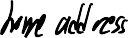 home address